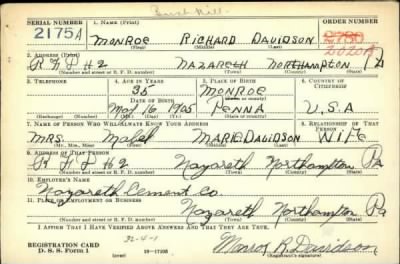 Bush Kill
SERIAL NUMBER 1. NAME (Print) ORDER NUMBER
2175A MONROE RICHARD DAVIDSON 2780
(First) (Middle) (Last) 2020A
2. ADDRESS (Print)
R F D #2 NAZARETH NORTHAMPTON PA
(Number and street or R. F. D. number) (Town) (County) (State)
3. TELEPHONE 4. AGE IN YEARS 5. PLACE OF BIRTH 6. COUNTRY OF CITIZENSHIP
35 MONROE
DATE OF BIRTH (Town or county)
May 16 1905 PENNA U.S.A
(Exchange) (No.) (Mo.) (Day) (Yr.) (State or country)
7. NAME OF PERSON WHO WILL ALWAYS KNOW YOUR ADDRESS 8. RELATIONSHIP OF THAT PERSON
MRS. Mabel MARIE DAVIDSON WIFE
(Mr., Mrs., Miss) (First) (Middle) (Last)
9. ADDRESS OF THAT PERSON
R F D #2 Nazareth Northampton Pa
(Number and street or R. F. D. number) (Town) (County) (State)
10. EMPLOYER'S NAME
Nazareth Cement Co.
11. PLACE OF EMPLOYMENT OR BUSINESS
Nazareth Northampton Pa
(Number and street or R. F. D. number) (Town) (County) (State)
I AFFIRM THAT I HAVE VERIFIED ABOVE ANSWERS AND THAT THEY ARE TRUE.
REGISTRATION CARD 32-4-1
D. S. S. Form 1 (over) 16—17105 Monroe R. Davidson
(Registrant's signature)